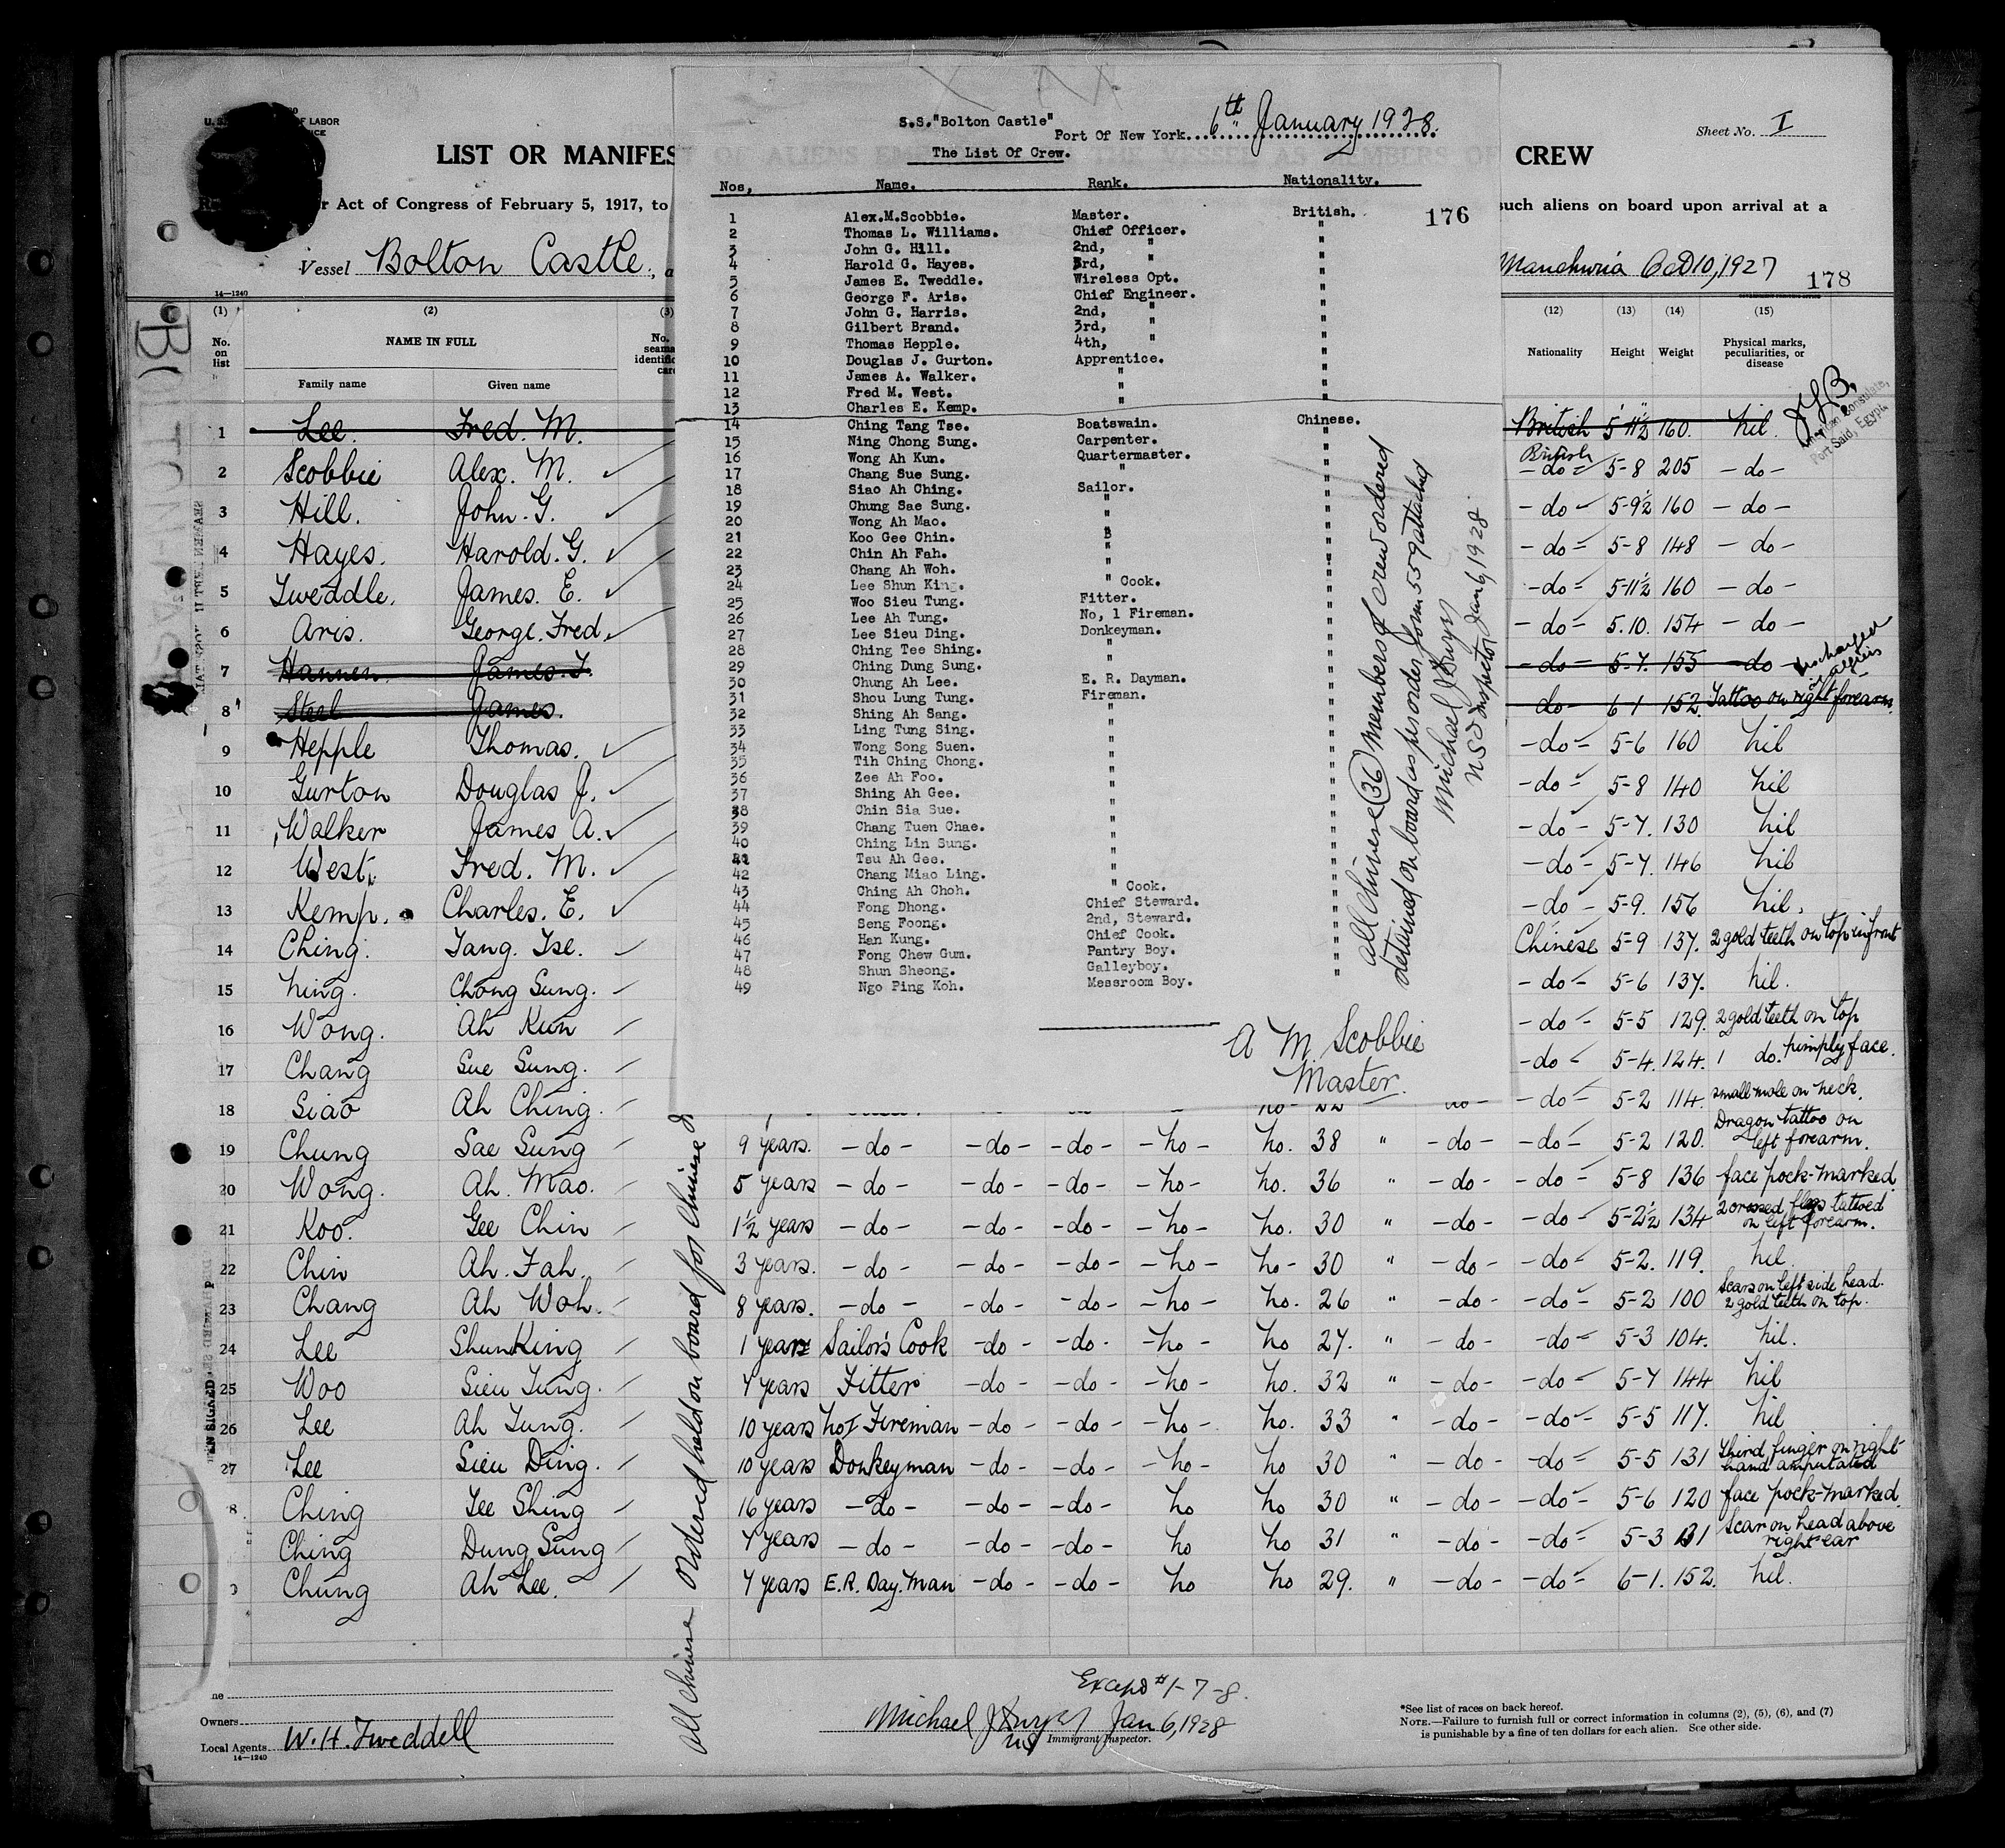 LIST OR MANIFES
CREW
Sheet No. I
Act of Congress of February 5, 1917, to
such aliens on board upon arrival at a
Vessel Bolton Castle
Manchuria Oct 10, 1927
178
14—1240
S.S."Bolton Castle"
Port Of New York 6th January 1928.
The List Of Crew.
Nos, Name. Rank. Nationality.
176
1 Alex.M.Scobbie. Master. British.
2 Thomas L. Williams. Chief Officer. "
3 John G. Hill. 2nd, " "
4 Harold G. Hayes. 3rd, " "
5 James E. Tweddle. Wireless Opt. "
6 George F. Aris. Chief Engineer. "
7 John G. Harris. 2nd, " "
8 Gilbert Brand. 3rd, " "
9 Thomas Hepple. 4th, " "
10 Douglas J. Gurton. Apprentice. "
11 James A. Walker. " "
12 Fred M. West. " "
13 Charles E. Kemp. " "
14 Ching Tang Tse. Boatswain. Chinese.
15 Ning Chong Sung. Carpenter. "
16 Wong Ah Kun. Quartermaster. "
17 Chang Sue Sung. " "
18 Siao Ah Ching. Sailor. "
19 Chung Sae Sung. " "
20 Wong Ah Mao. " "
21 Koo Gee Chin. " "
22 Chin Ah Fah. " "
23 Chang Ah Woh. " "
24 Lee Shun King. " Cook. "
25 Woo Sieu Tung. Fitter. "
26 Lee Ah Tung. No, 1 Fireman. "
27 Lee Sieu Ding. Donkeyman. "
28 Ching Tee Shing. " "
29 Ching Dung Sung. " "
30 Chung Ah Lee. E. R. Dayman. "
31 Shou Lung Tung. Fireman. "
32 Shing Ah Sang. " "
33 Ling Tung Sing. " "
34 Wong Song Suen. " "
35 Tih Ching Chong. " "
36 Zee Ah Foo. " "
37 Shing Ah Gee. " "
38 Chin Sia Sue. " "
39 Chang Tuen Chae. " "
40 Ching Lin Sung. " "
41 Tsu Ah Gee. " "
42 Chang Miao Ling. " "
43 Ching Ah Choh. " Cook. "
44 Fong Dhong. Chief Steward. "
45 Seng Foong. 2nd, Steward. "
46 Han Kung. Chief Cook. "
47 Fong Chew Gum. Pantry Boy. "
48 Shun Sheong. Galleyboy. "
49 Ngo Ping Koh. Messroom Boy.
A M Scobbie
Master.
all Chinese (36) members of crew ordered
detained on board as per order form 559 attached
Michael J
Inspector Jan 6, 1928
(1) (2) (3) (12) (13) (14) (15)
No. on list NAME IN FULL Nationality Height Weight Physical marks, peculiarities, or disease
Family name Given name
1 Lee. Fred. M. British 5 11½ 160. Nil.
American Consulate, Port Said, Egypt.
2 Scobbie Alex. M. British -do- 5-8 205 -do-
3 Hill. John. G. -do- 5-9½ 160 -do-
4 Hayes. Harold. G. -do- 5-8 148 -do-
5 Tweddle. James. E. -do- 5-11½ 160 -do-
6 Aris. George. Fred. -do- 5.10. 154 -do-
7 Hannen James. T. -do- 5-7. 155 -do- discharged Algiers
8 Steel James. do- 6-1 152. Tattoo on right forearm.
9 Hepple Thomas. -do- 5-6 160 Nil
10 Gurton Douglas J. -do- 5-8 140 Nil
11 Walker James A. -do- 5-7. 130 Nil
12 West. Fred. M. -do- 5-7. 146 Nil
13 Kemp. Charles. E. -do- 5-9. 156 Nil.
14 Ching. Tang. Tse. Chinese 5-9 137. 2 gold teeth on top in front
15 Ning. Chong Sung. -do- 5-6 137. Nil.
16 Wong. Ah Kun -do- 5-5 129. 2 gold teeth on top
17 Chang Sue Sung. -do- 5-4. 124. 1 do. pimply face.
18 Siao Ah Ching. -do- 5-2 114. small mole on neck.
19 Chung Sae Sung 9 years. -do- -do- -do- -No- No. 38 " -do- -do- 5-2 120. Dragon tattoo on left forearm.
20 Wong. Ah. Mao. 5 years -do- -do- -do- -No- No. 36 " -do- -do- 5-8 136 face pock-marked.
21 Koo. Gee Chin 1½ years -do- -do- -do- -No- No. 30 " -do- -do- 5-2½ 134 2 crossed flags tattoed on left forearm.
22 Chin Ah. Fah. 3 years. -do- -do- -do- -No- No- 30 " -do- -do- 5-2. 119. Nil.
23 Chang Ah Woh. 8 years. -do- -do- -do- -No- No. 26 " -do- -do- 5-2 100 Scars on left side head. 2 gold teeth on top.
24 Lee Shun King 1 years Sailor's Cook -do- -do- -No- No 27. " -do- -do- 5-3 104. Nil.
25 Woo Sieu Tung. 7 years Fitter -do- -do- -No- No. 32 " -do- -do- 5-7 144 Nil
26 Lee Ah Tung. 10 years No 1 Fireman -do- -do- -No- No. 33 " -do- -do- 5-5 117. Nil
27 Lee Sieu Ding. 10 years Donkeyman -do- -do- -No- No 30 " -do- -do- 5-5 131 third finger on right hand amputated
8. Ching Tee Shing 16 years -do- -do- -do- No No 30 " -do- -do- 5-6 120 face pock-marked.
Ching Dung Sung 7 years -do- -do- -do- No No 31 " -do- -do- 5-3 131 Scar on head above right ear
Chung Ah Lee. 7 years E.R. Day. Man -do- -do- No No 29. " -do- -do- 6-1. 152. Nil.
All Chinese ordered held on board for Chinese
Owners
Local Agents W.H. Tweddell
14—1240
Except #1-7-8.
Michael J Jan 6, 1928
Immigrant Inspector.
*See list of races on back hereof.
NOTE.—Failure to furnish full or correct information in columns (2), (5), (6), and (7)
is punishable by a fine of ten dollars for each alien. See other side.